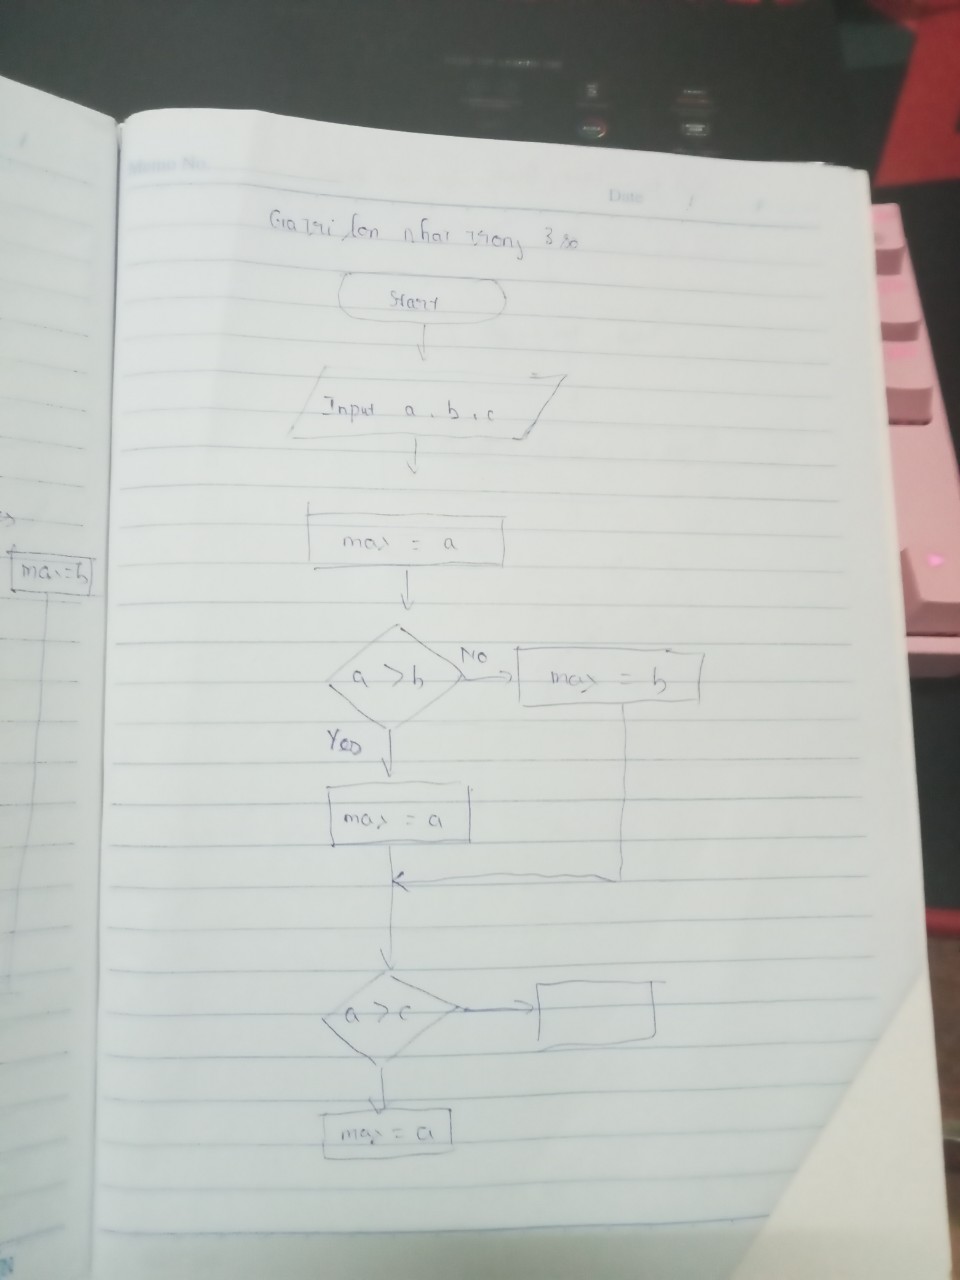 Memo No.
Date / /
Gia tri lon nhat trong 3 so
Start
Input a, b, c
max = a
a > b
NO
max = b
Yes
max = a
a > c
max = a
max=b
N